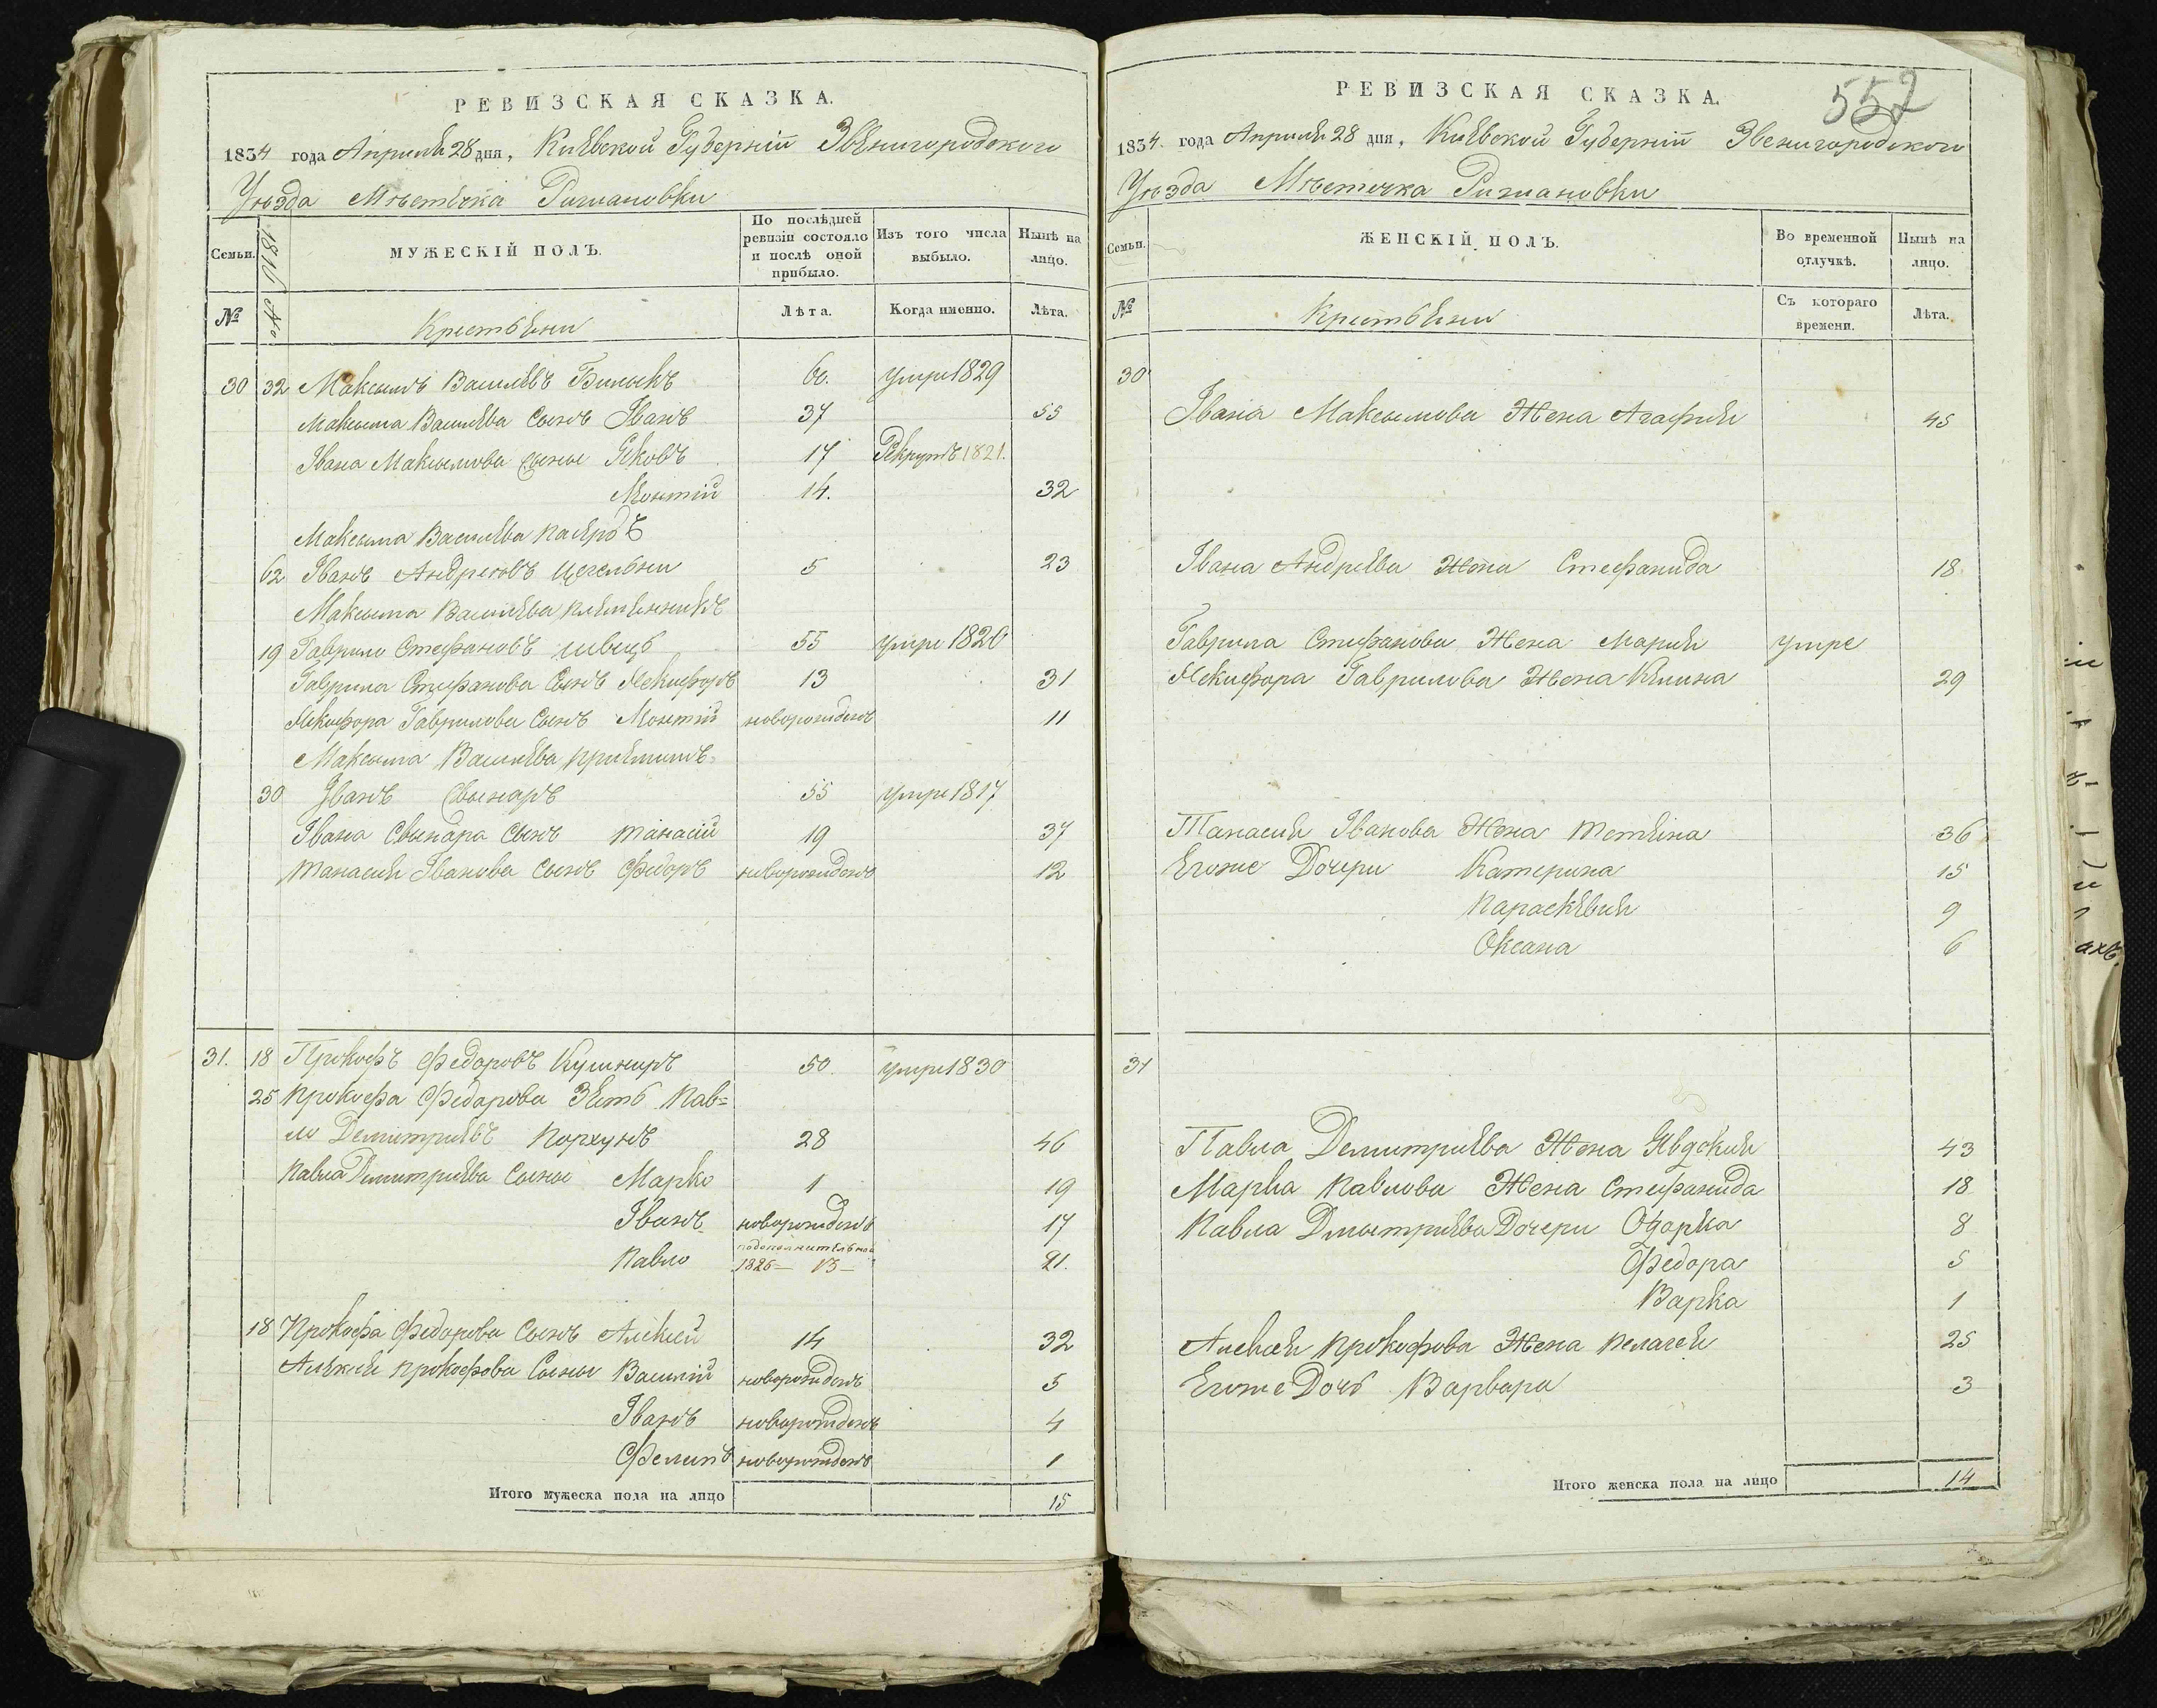 РЕВИЗСКАЯ СКАЗКА.
1834 года Апреля 28 дня, Кіевской Губерніи Звенигородского
Уѣзда Мѣстечка Рижановки
Семьи.
1816 №
МУЖЕСКІЙ ПОЛЪ.
По послѣдней ревизіи состояло и послѣ оной прибыло.
Изъ того числа выбыло.
Нынѣ на лицо.
№
Крестьяни
Лѣта.
Когда именно.
Лѣта.
30 32 Максымъ Васильевъ Билыкъ 60. умре 1829
Максыма Васильева Сынъ Іванъ 37 55
Івана Максымова сыны Яковъ 17 Рекрутъ 1821.
Монтій 14. 32
Максыма Васильева
62 Іванъ Андреевъ 5 23
Максыма Васильева племенникъ
19 Гаврило Стефановъ швець 55 умре 1826
Гаврила Стефанова Сынъ Некифоръ 13 31
Некифора Гаврилова Сынъ Монтій новорожденъ 11
Максыма Васильева пріемишъ
30 Іванъ Свынаръ 55 умре 1817
Івана Свынара Сынъ Танасій 19 37
Танасія Іванова Сынъ Федоръ новорожденъ 12
31. 18 Прокофъ Федоровъ Кушниръ 50 умре 1830
25 Прокофа Федорова Зять Пав=
ло Демитріевъ Порхунъ 28 46
Павла Димитріева Сыны Марко 1 19
Іванъ новорожденъ 17
Павло подополнительной 1826— 13— 21.
18 Прокофа Федорова Сынъ Алексей 14 32
Алексея Прокофова Сыны Василій новорожденъ 5
Іванъ новорожденъ 4
Филипъ новорожденъ 1
Итого мужеска пола на лицо 15
557
РЕВИЗСКАЯ СКАЗКА.
1834. года Апреля 28 дня, Кіевской Губерніи Звенигородского
Уѣзда Мѣстечка Рижановки
Семьи.
ЖЕНСКІЙ ПОЛЪ.
Во временной отлучкѣ.
Нынѣ на лицо.
№
Крестьяни
Съ котораго времени.
Лѣта.
30
Івана Максымова Жена Агафия 45
Івана Андреева Жена Стефанида 18
Гаврила Стефанова Жена Мария умре
Некифора Гаврилова Жена 29
Танасия Іванова Жена Тетяна 36
Егоже Дочери Катерина 15
Параскевия 9
Оксана 6
31
Павла Демитріева Жена Явдокия 43
Марка Павлова Жена Стефанида 18
Павла Дмытріева Дочери Одарка 8
Федора 5
Варка 1
Алексея Прокофова Жена Пелагея 25
Егоже Дочь Варвара 3
Итого женска пола на лицо 14
ахъ